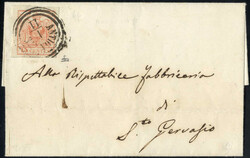 Alla Rispettabile Fabbriceria
di
S.te Gervasio